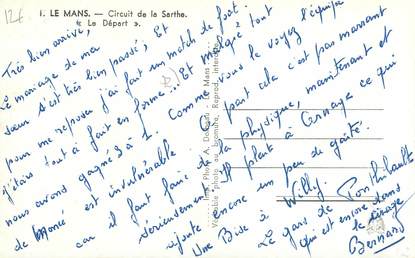 12€
1. LE MANS. — Circuit de la Sarthe.
« Le Départ ».
Très bien arrivé,
Le mariage de ma
sœur s'est très bien passé, Et
pour me reposer j'ai fait un match de foot.
j'étais tout à fait en forme... Et malgré tout
nous avons gagné 3 à 1. Comme vous le voyez l'équipe
de Moncé est invulnérable. à part cela c'est pas marrant
car il faut faire de la physique, maintenant et
sérieusement. Il pleut à Arnage ce qui
ajoute encore un peu de gaîté.
Une Bise à Willy.
Le gars de Ponthibault
qui est encore dans
le virage
Bernard
Imp. Photo A. Dolbeau - Le Mans
Véritable photo au bromure, Reprod. interdite